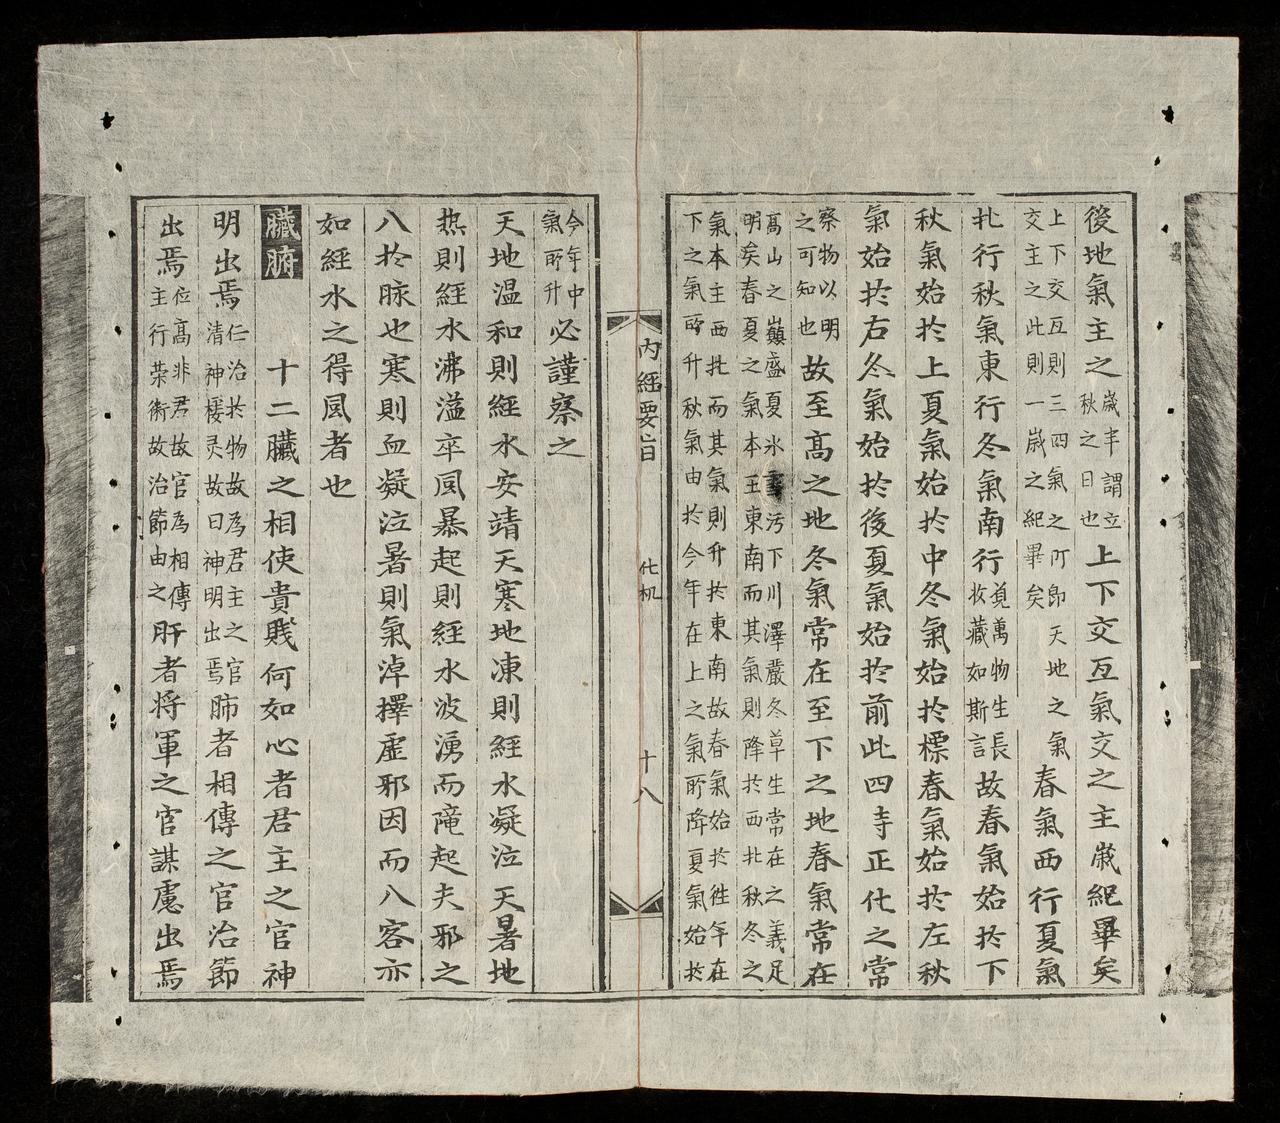 後地氣主之歲半謂立秋之日也上下交互氣交之主歲紀畢矣
上下交互則三四氣之所即天地之氣交主之此則一歲之紀畢矣春氣西行夏氣
北行秋氣東行冬氣南行覓萬物生長收藏如斯言故春氣始於下
秋氣始於上夏氣始於中冬氣始於標春氣始於左秋
氣始於右冬氣始於後夏氣始於前此四寺正化之常
察物以明之可知也故至高之地冬氣常在至下之地春氣常在
高山之巔盛夏氷雪污下川澤嚴冬草生常在之義足
明矣春夏之氣本主東南而其氣則降於西北秋冬之
氣本主西北而其氣則升於東南故春氣始於徃年在
下之氣所升秋氣由於今年在上之氣所降夏氣始於
内經要旨 化机 十八
今年中氣所升必謹察之
天地温和則經水安靖天寒地凍則經水凝泣天暑地
热則經水沸溢卒風暴起則經水波湧而隴起夫邪之
入於脉也寒則血凝泣暑則氣淖擇虛邪因而入客亦
如經水之得風者也
臟腑 十二臟之相使貴賤何如心者君主之官神
明出焉仁治於物故為君主之官清神棲灵故曰神明出焉肺者相傳之官治節
出焉位高非君故官為相傳主行荣衛故治節由之肝者将軍之官謀慮出焉